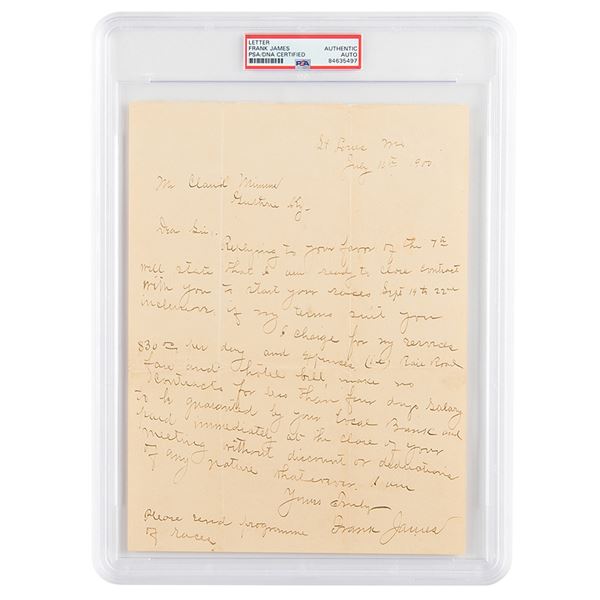 LETTER
FRANK JAMES
PSA/DNA CERTIFIED
AUTHENTIC
AUTO
84635497
PSA
St Louis Mo
July 10th 1900
Mr Claud
Guthrie Ky-
Dear Sir,
Replying to your favor of the 7th
will state that I am ready to close contract
with you to start your races Sept 19th 22nd
inclusive if my terms suit you
I charge for my services
$30 00 per day and expenses (i.e) Rail Road
fare and Hotel bill, make no
contracts for less than four days Salary
to be guaranteed by your Local Bank and
paid immediately at the close of your
meeting without discount or deductions
of any nature whatever. I am
Yours Truly
Frank James
Please send programme
of races